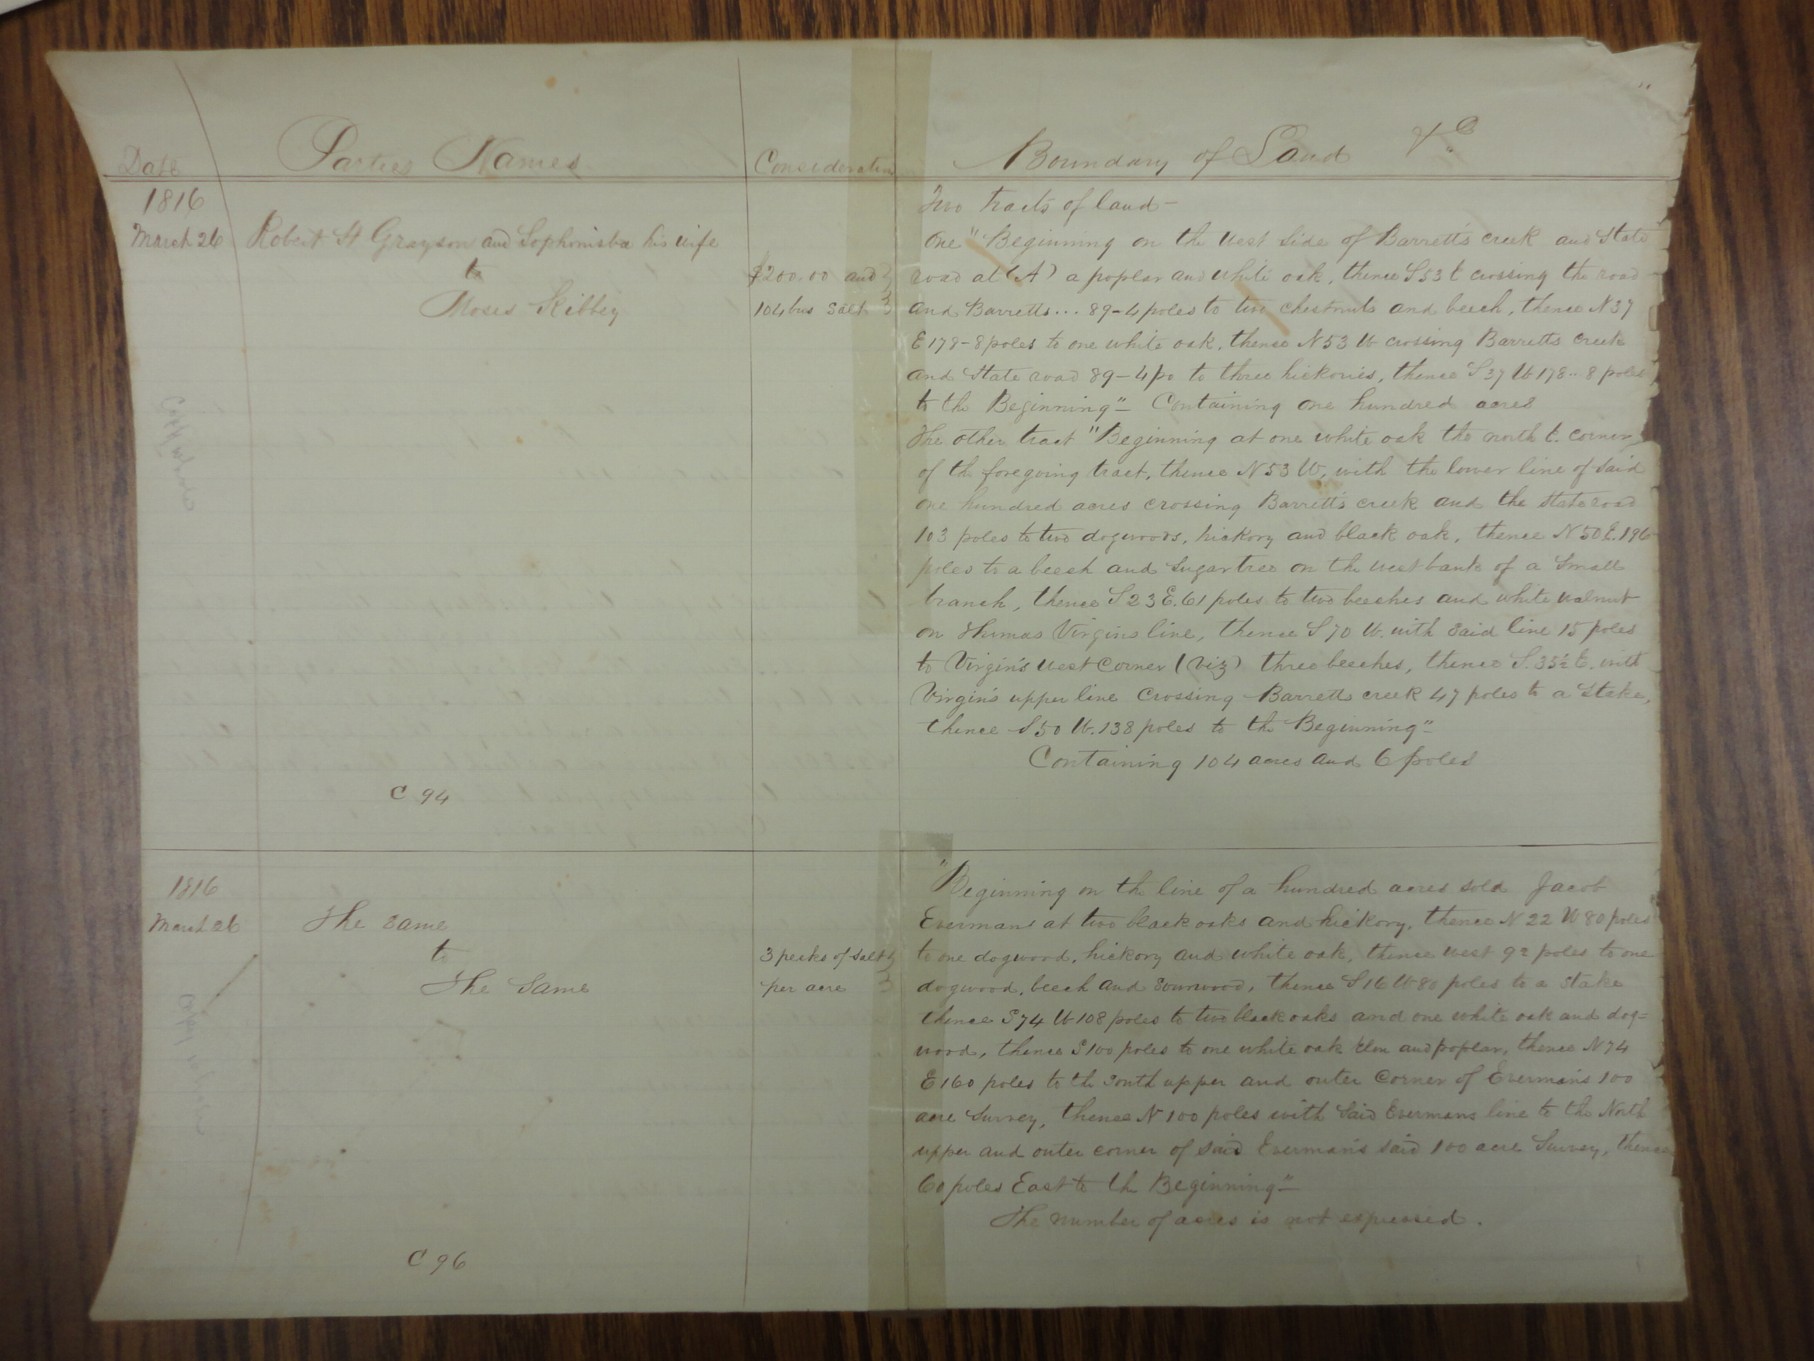 Date Parties Names Consideration Boundary of Land &c
1816
March 26 Robert H Grayson and Sophonisba his wife
to
Moses Kibbey
$200.00 and
104 bus salt
Two tracts of land—
One "Beginning on the West side of Barrett's creek and State
road at (A) a poplar and white oak, thence S 53 E crossing the road
and Barretts... 89-4 poles to two chestnuts and beech, thence N 37
E 178-8 poles to one white oak, thence N 53 W crossing Barretts creek
and State road 89-4 po to three hickories, thence S 37 W 178..8 poles
to the Beginning"— Containing one hundred acres
The other tract "Beginning at one white oak the north E. corner
of the foregoing tract, thence N 53 W, with the lower line of said
one hundred acres crossing Barrett's creek and the state road
103 poles to two dogwoods, hickory and black oak, thence N 50 E. 196
poles to a beech and sugar tree on the west bank of a small
branch, thence S 23 E. 61 poles to two beeches and white walnut
on Thomas Virgins line, thence S 70 W. with said line 15 poles
to Virgin's West Corner (viz) three beeches, thence S. 35½ E. with
Virgin's upper line crossing Barretts creek 47 poles to a stake,
thence S 50 W. 138 poles to the Beginning"—
Containing 104 acres and 6 poles
C 94
1816
March 26 The same
to
The same
3 pecks of salt
per acre
"Beginning on the line of a hundred acres sold Jacob
Evermans at two black oaks and hickory, thence N 22 W 80 poles
to one dogwood, hickory and white oak, thence west 92 poles to one
dogwood, beech and sourwood, thence S 16 W 80 poles to a stake
thence S 74 W 108 poles to two black oaks and one white oak and dog=
wood, thence S 100 poles to one white oak elm and poplar, thence N 74
E 160 poles to the South upper and outer corner of Everman's 100
acre survey, thence N 100 poles with said Evermans line to the North
upper and outer corner of said Everman's said 100 acre Survey, thence
60 poles East to th Beginning"—
The number of acres is not expressed.
C 96